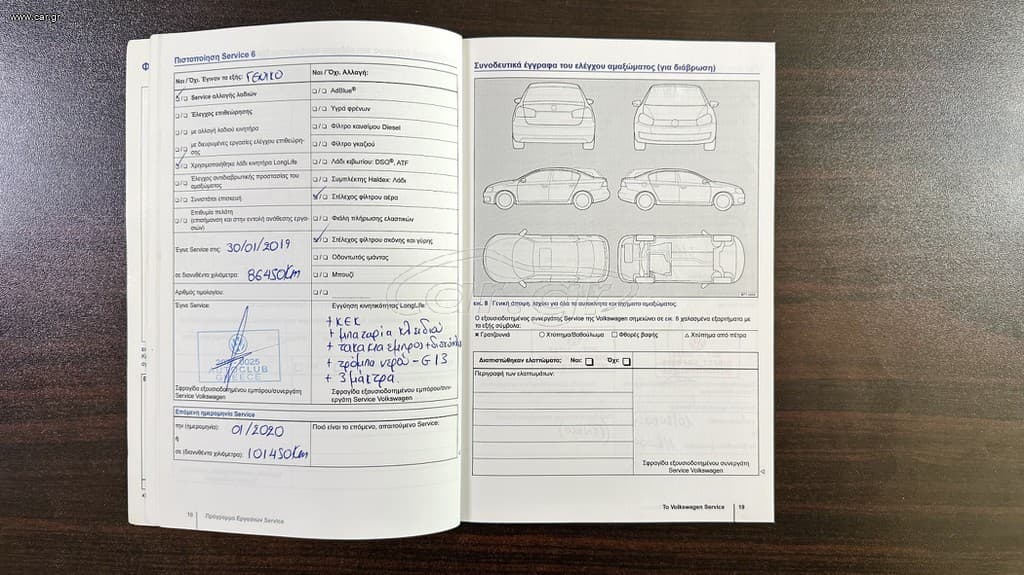 www.car.gr
Πιστοποίηση Service 6
Ναι / Όχι. Έγιναν τα εξής: ΓΕΝΙΚΟ
Ναι / Όχι. Αλλαγή:
Service αλλαγής λαδιών
Έλεγχος επιθεώρησης
με αλλαγή λαδιού κινητήρα
με διευρυμένες εργασίες ελέγχου επιθεώρη-
σης
Χρησιμοποιήθηκε λάδι κινητήρα LongLife
Έλεγχος αντιδιαβρωτικής προστασίας του
αμαξώματος
Συνιστάται επισκευή
Επιθυμία πελάτη
(επισήμανση και στην εντολή ανάθεσης εργα-
σιών)
AdBlue®
Υγρά φρένων
Φίλτρο καυσίμου Diesel
Φίλτρο γκαζιού
Λάδι κιβωτίου: DSG®, ATF
Συμπλέκτης Haldex: Λάδι
Στέλεχος φίλτρου αέρα
Φιάλη πλήρωσης ελαστικών
Στέλεχος φίλτρου σκόνης και γύρης
Οδοντωτός ιμάντας
Μπουζί
Έγινε Service στις: 30/01/2019
σε διανυθέντα χιλιόμετρα: 86450Km
Αριθμός τιμολογίου:
Έγινε Service:
AUTOCLUB
GREECE
Σφραγίδα εξουσιοδοτημένου εμπόρου/συνεργάτη
Service Volkswagen
Εγγύηση κινητικότητας LongLife
+ ΚΕΚ
+ μπαταρία κλειδιού
+ τακάκια εμπρος + δισκόπλ
+ τρόμπα νερού - G13
+ 3 μάκτρα.
Σφραγίδα εξουσιοδοτημένου εμπόρου/συν-
εργάτη Service Volkswagen
Επόμενη ημερομηνία Service
την (ημερομηνία): 01/2020
ή
σε (διανυθέντα χιλιόμετρα): 101450Km
Ποιό είναι το επόμενο, απαιτούμενο Service:
18 Πρόγραμμα Εργασιών Service
Συνοδευτικά έγγραφα του ελέγχου αμαξώματος (για διάβρωση)
εικ. 8 Γενική άποψη, ισχύει για όλα τα αυτοκίνητα και σχήματα αμαξώματος.
Ο εξουσιοδοτημένος συνεργάτης Service της Volkswagen σημειώνει σε εικ. 8 χαλασμένα εξαρτήματα με
τα εξής σύμβολα:
× Γρατζουνιά
○ Χτύπημα/Βαθούλωμα
□ Φθορές βαφής
△ Χτύπημα από πέτρα
Διαπιστώθηκαν ελαττώματα; Ναι: Όχι:
Περιγραφή των ελαττωμάτων:
Σφραγίδα εξουσιοδοτημένου συνεργάτη
Service Volkswagen
Το Volkswagen Service 19